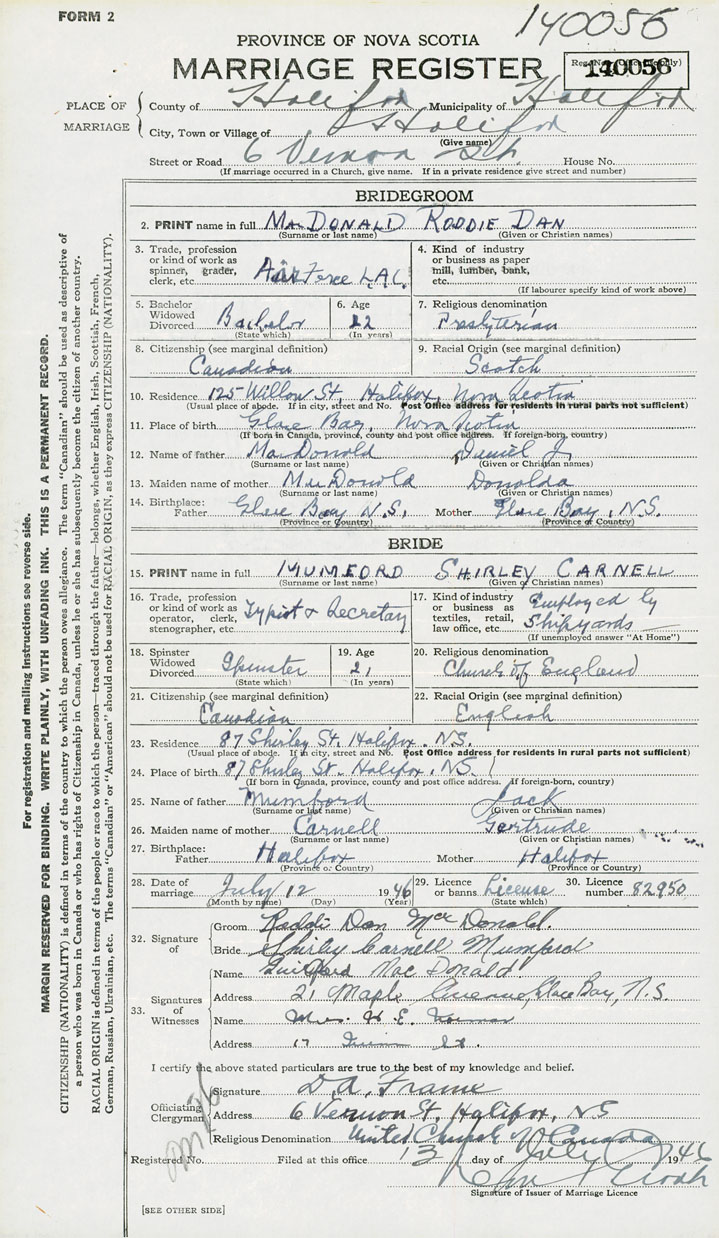 FORM 2
140056
PROVINCE OF NOVA SCOTIA
MARRIAGE REGISTER
140056
PLACE OF MARRIAGE
County of Halifax Municipality of Halifax
City, Town or Village of Halifax
(Give name)
Street or Road 6 Vernon St. House No.
(If marriage occurred in a Church, give name. If in a private residence give street and number)
BRIDEGROOM
2. PRINT name in full MacDONALD RODDIE DAN
(Surname or last name) (Given or Christian names)
3. Trade, profession or kind of work as spinner, grader, clerk, etc. Air Force L.A.C.
4. Kind of industry or business as paper mill, lumber, bank, etc.
(If labourer specify kind of work above)
5. Bachelor Widowed Divorced Bachelor
(State which)
6. Age 22
(In years)
7. Religious denomination
Presbyterian
8. Citizenship (see marginal definition)
Canadian
9. Racial Origin (see marginal definition)
Scotch
10. Residence 125 Willow St. Halifax, Nova Scotia
(Usual place of abode. If in city, street and No. Post Office address for residents in rural parts not sufficient)
11. Place of birth Glace Bay, Nova Scotia
(If born in Canada, province, county and post office address. If foreign-born, country)
12. Name of father MacDonald Daniel J.
(Surname or last name) (Given or Christian names)
13. Maiden name of mother MacDonald Donalda
(Surname or last name) (Given or Christian names)
14. Birthplace:
Father Glace Bay N.S. Mother Glace Bay, N.S.
(Province or Country) (Province or Country)
BRIDE
15. PRINT name in full MUMFORD SHIRLEY CARNELL
(Surname or last name) (Given or Christian names)
16. Trade, profession or kind of work as operator, clerk, stenographer, etc. Typist & Secretary
17. Kind of industry or business as textiles, retail, law office, etc. Employed by Shipyards
(If unemployed answer "At Home")
18. Spinster Widowed Divorced Spinster
(State which)
19. Age 21
(In years)
20. Religious denomination
Church of England
21. Citizenship (see marginal definition)
Canadian
22. Racial Origin (see marginal definition)
English
23. Residence 87 Shirley St. Halifax, N.S.
(Usual place of abode. If in city, street and No. Post Office address for residents in rural parts not sufficient)
24. Place of birth 87 Shirley St. Halifax, N.S.
(If born in Canada, province, county and post office address. If foreign-born, country)
25. Name of father Mumford Jack
(Surname or last name) (Given or Christian names)
26. Maiden name of mother Carnell Gertrude
(Surname or last name) (Given or Christian names)
27. Birthplace:
Father Halifax Mother Halifax
(Province or Country) (Province or Country)
28. Date of marriage July 12 1946
(Month by name) (Day) (Year)
29. Licence or banns License
(State which)
30. Licence number 82950
32. Signature of
Groom Roddie Dan MacDonald.
Bride Shirley Carnell Mumford
33. Signatures of Witnesses
Name MacDonald
Address 21 Maple Avenue, Glace Bay, N.S.
Name Mrs. H. E.
Address 17 St.
I certify the above stated particulars are true to the best of my knowledge and belief.
Officiating Clergyman
Signature D. A. Frame
Address 6 Vernon St, Halifax, NS
Religious Denomination United Church of Canada
Registered No. Filed at this office 13 day of July 1946
Signature of Issuer of Marriage Licence
[SEE OTHER SIDE]
For registration and mailing instructions see reverse side.
MARGIN RESERVED FOR BINDING. WRITE PLAINLY, WITH UNFADING INK. THIS IS A PERMANENT RECORD.
CITIZENSHIP (NATIONALITY) is defined in terms of the country to which the person owes allegiance. The term "Canadian" should be used as descriptive of
a person who was born in Canada or who has rights of Citizenship in Canada, unless he or she has subsequently become the citizen of another country.
RACIAL ORIGIN is defined in terms of the people or race to which the person—traced through the father—belongs, whether English, Irish, Scottish, French,
German, Russian, Ukrainian, etc. The terms "Canadian" or "American" should not be used for RACIAL ORIGIN, as they express CITIZENSHIP (NATIONALITY).